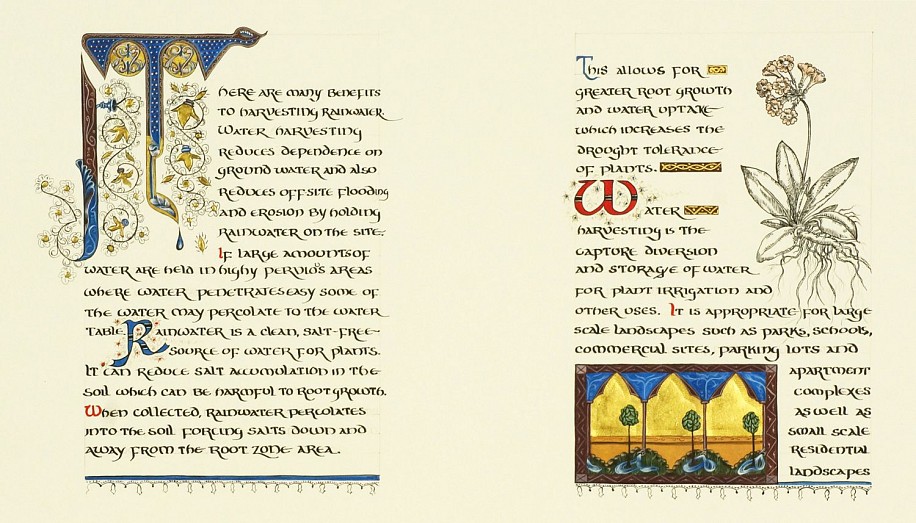 There are many benefits
to harvesting rainwater.
Water harvesting
reduces dependence on
ground water and also
reduces offsite flooding
and erosion by holding
rainwater on the site.
If large amounts of
water are held in highy pervious areas
where water penetrates easy some of
the water may percolate to the water
table. Rainwater is a clean, salt-free
source of water for plants.
It can reduce salt accumulation in the
soil which can be harmful to root growth.
When collected, rainwater percolates
into the soil forcing salts down and
away from the root zone area.
This allows for
greater root growth
and water uptake
which increases the
drought tolerance
of plants.
Water
harvesting is the
capture diversion
and storage of water
for plant irrigation and
other uses. It is appropriate for large
scale landscapes such as parks, schools,
commercial sites, parking lots and
apartment
complexes
as well as
small scale
residential
landscapes